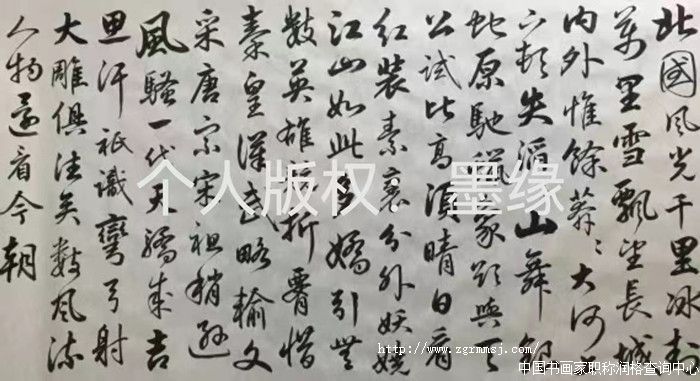 北國風光千里冰封
萬里雪飄望長城
內外惟餘莽〻大河上
下頓失滔〻山舞銀
蛇原馳蠟象欲與天
公試比高須晴日看
紅裝素裹分外妖嬈
江山如此多嬌引無
數英雄競折腰惜
秦皇漢武略輸文
采唐宗宋祖稍遜
風騷一代天驕成吉
思汗祇識彎弓射
大雕俱往矣數風流
人物還看今朝
个人版权：墨缘
http://www.zgrmmsj.com/
中国书画家职称润格查询中心